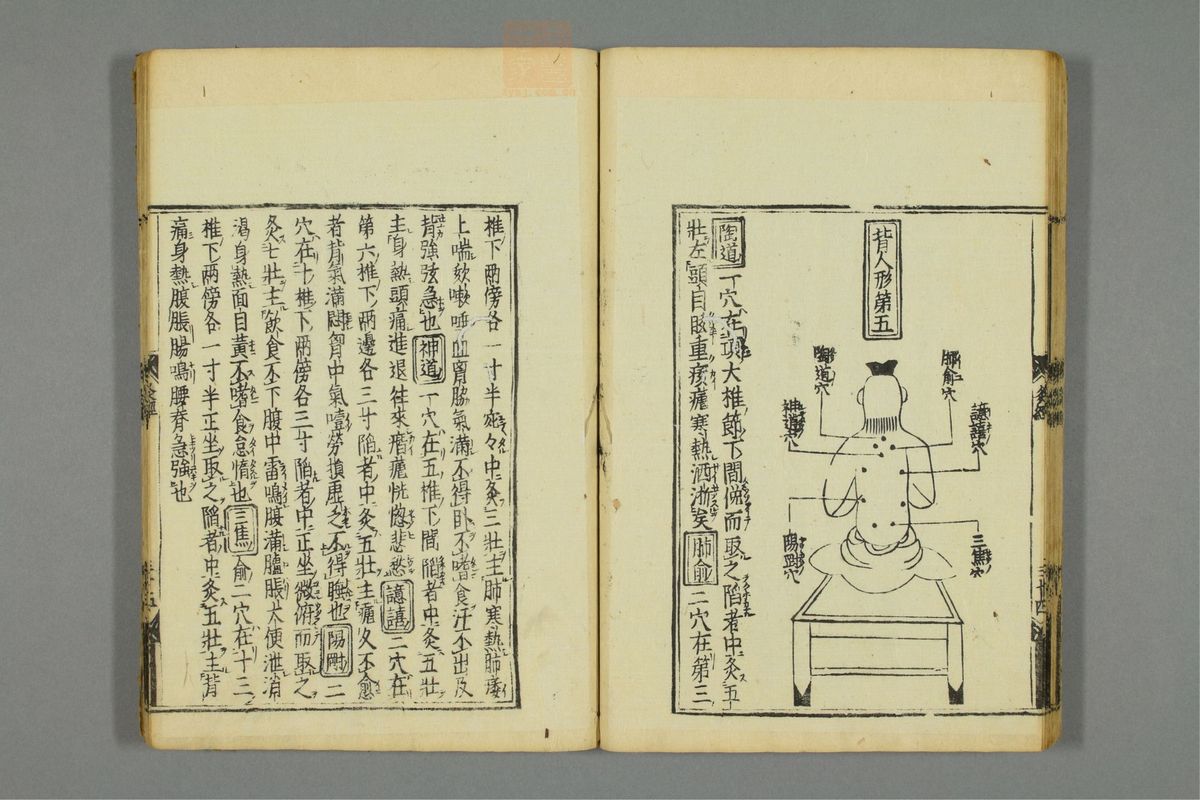 背人形第五
肺俞穴
譩譆穴
三焦穴
陶道穴
神道穴
陽罡穴
陶道一穴在項大椎節下間俛而取之陷者中灸五
壯左頭目眩重痎瘧寒熱洒淅矣肺俞二穴在第三
椎下兩傍各一寸半宛々中灸三壯主肺寒熱肺痿
上喘欬嗽唾血胷脇氣滿不得卧不嗜食汗不出及
背強弦急也神道一穴在五椎下間陷者中灸五壯
主身熱頭痛進退往來痎瘧恍惚悲愁譩譆二穴在
第六椎下兩邊各三寸陷者中灸五壯主瘧久不愈
者背氣滿悶胷中氣噎勞損虛乏不得睡也陽剛二
穴在十椎下兩傍各三寸陷者中正坐微俯而取之
灸七壯主飲食不下腹中雷鳴腹滿臚脹大便泄消
渴身熱面目黃不嗜食怠惰也三焦俞二穴在十三
椎下兩傍各一寸半正坐取之陷者中灸五壯主背
痛身熱腹脹腸鳴腰脊急強也
灸經